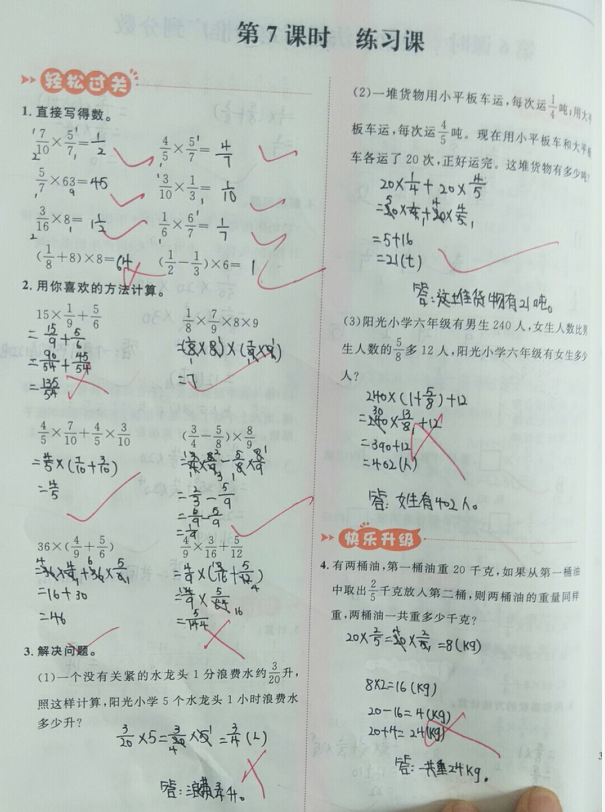 第 7 课时 练习课
轻松过关
1. 直接写得数。
7/10×5/7=1/2 4/5×5/7=4/7
5/7×63=45 3/10×1/3=1/10
3/16×8=1 1/2 1/6×6/7=1/7
(1/8+8)×8=64 (1/2-1/3)×6=1
2. 用你喜欢的方法计算。
15×1/9+5/6 1/8×7/9×8×9
=15/9+5/6 =(1/8×8)×(7/9×9)
=90/54+45/54 =7
=135/54
4/5×7/10+4/5×3/10 (3/4-5/8)×8/9
=4/5×(7/10+3/10) =3/4×8/9-5/8×8/9
=4/5 =2/3-5/9
=6/9-5/9
=1/9
36×(4/9+5/6) 4/9×3/16+5/12
=36×4/9+36×5/9 =4/9×(3/16+5/12)
=16+30 =4/9×5/64
=46 =5/144
3. 解决问题。
(1)一个没有关紧的水龙头 1 分浪费水约3/20升,
照这样计算,阳光小学 5 个水龙头 1 小时浪费水
多少升?
3/20×5=3/20×5=3/4(L)
答:浪费3/4升。
(2)一堆货物用小平板车运,每次运1/4吨;用大平
板车运,每次运4/5吨。现在用小平板车和大平板
车各运了 20 次,正好运完。这堆货物有多少吨?
20×1/4+20×4/5
=20×1/4+20×4/5
=5+16
=21(t)
答:这堆货物有21吨。
(3)阳光小学六年级有男生 240 人,女生人数比男
生人数的5/8多 12 人,阳光小学六年级有女生多少
人?
240×(1+5/8)+12
=240×13/8+12
=390+12
=402(人)
答:女生有402人。
快乐升级
4. 有两桶油,第一桶油重 20 千克,如果从第一桶油
中取出2/5千克放入第二桶,则两桶油的重量同样
重,两桶油一共重多少千克?
20×2/5=20×2/5=8(kg)
8×2=16(kg)
20-16=4(kg)
20+4=24(kg)
答:一共重24kg。